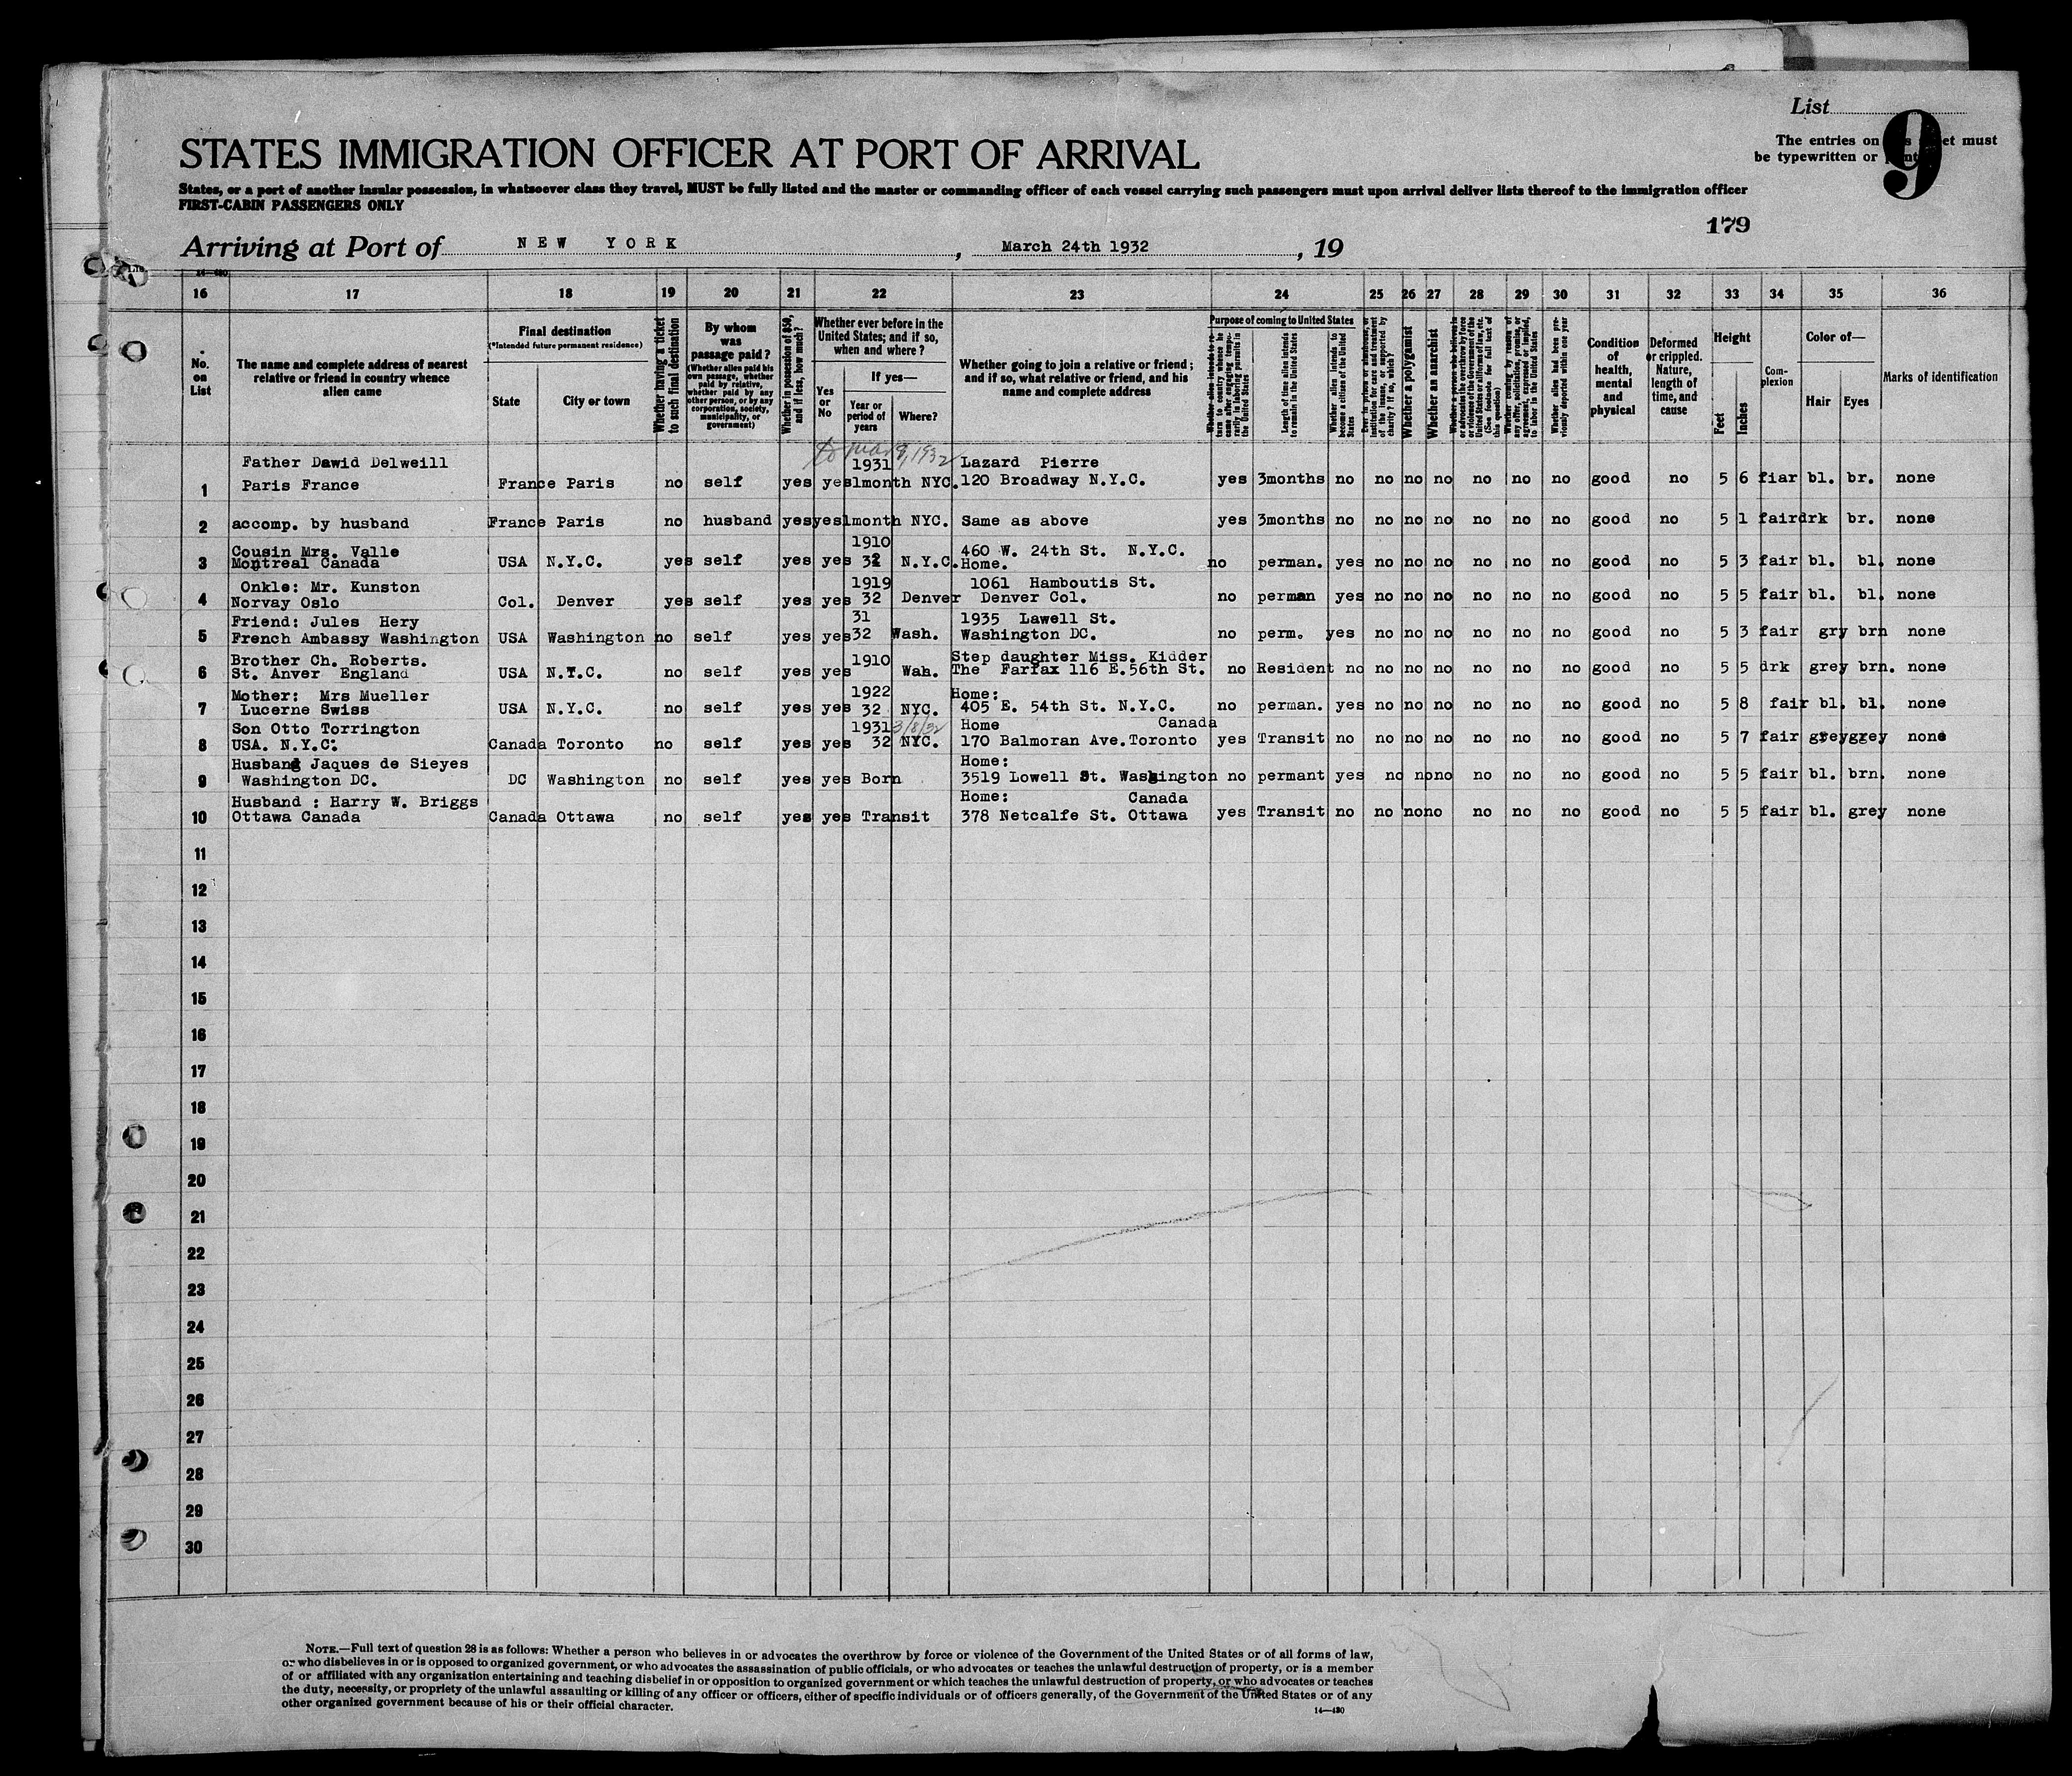 List
9
The entries on et must
be typewritten or
STATES IMMIGRATION OFFICER AT PORT OF ARRIVAL
States, or a port of another insular possession, in whatsoever class they travel, MUST be fully listed and the master or commanding officer of each vessel carrying such passengers must upon arrival deliver lists thereof to the immigration officer
FIRST-CABIN PASSENGERS ONLY
179
Arriving at Port of NEW YORK, March 24th 1932, 19
16 17 18 19 20 21 22 23 24 25 26 27 28 29 30 31 32 33 34 35 36
No. on List
The name and complete address of nearest relative or friend in country whence alien came
Final destination
(*Intended future permanent residence)
State
City or town
Whether having a ticket to such final destination
By whom was passage paid?
(Whether alien paid his own passage, whether paid by relative, whether paid by any other person, or by any corporation, society, municipality, or government)
Whether in possession of $50, and if less, how much?
Whether ever before in the United States; and if so, when and where?
Yes or No
If yes—
Year or period of years
Where?
Whether going to join a relative or friend; and if so, what relative or friend, and his name and complete address
Purpose of coming to United States
Length of time alien intends to remain in the United States
Whether alien intends to become a citizen of the United States
Whether a polygamist
Whether an anarchist
Whether alien had been previously deported within one year
Condition of health, mental and physical
Deformed or crippled. Nature, length of time, and cause
Height
Feet
Inches
Complexion
Color of—
Hair
Eyes
Marks of identification
to Mar 8, 1932
Father Dawid Delweill 1931 Lazard Pierre
1 Paris France France Paris no self yes yes 1month NYC. 120 Broadway N.Y.C. yes 3months no no no no no no no good no 5 6 fiar bl. br. none
2 accomp. by husband France Paris no husband yes yes 1month NYC. Same as above yes 3months no no no no no no no good no 5 1 fair drk br. none
Cousin Mrs. Valle 1910 460 W. 24th St. N.Y.C.
3 Montreal Canada USA N.Y.C. yes self yes yes 32 N.Y.C. Home. no perman. yes no no no no no no good no 5 3 fair bl. bl. none
Onkle: Mr. Kunston 1919 1061 Hamboutis St.
4 Norvay Oslo Col. Denver yes self yes yes 32 Denver Denver Col. no perman yes no no no no no no good no 5 5 fair bl. bl. none
Friend: Jules Hery 31 1935 Lawell St.
5 French Ambassy Washington USA Washington no self yes yes 32 Wash. Washington DC. no perm. yes no no no no no no good no 5 3 fair gry brn none
Brother Ch. Roberts. 1910 Step daughter Miss. Kidder
6 St. Anver England USA N.Y.C. no self yes yes Wah. The Farfax 116 E.56th St. no Resident no no no no no no no good no 5 5 drk grey brn. none
Mother: Mrs Mueller 1922 Home:
7 Lucerne Swiss USA N.Y.C. no self yes yes 32 NYC. 405 E. 54th St. N.Y.C. no perman. yes no no no no no no good no 5 8 fair bl. bl. none
Son Otto Torrington 1931 3/8/32 Home Canada
8 USA. N.Y.C. Canada Toronto no self yes yes 32 NYC. 170 Balmoran Ave.Toronto yes Transit no no no no no no no good no 5 7 fair grey grey none
Husband Jaques de Sieyes Home:
9 Washington DC. DC Washington no self yes yes Born 3519 Lowell St. Washington no permant yes no no no no no no good no 5 5 fair bl. brn. none
Husband : Harry W. Briggs Home: Canada
10 Ottawa Canada Canada Ottawa no self yes yes Transit 378 Netcalfe St. Ottawa yes Transit no no no no no no no good no 5 5 fair bl. grey none
11
12
13
14
15
16
17
18
19
20
21
22
23
24
25
26
27
28
29
30
NOTE.—Full text of question 28 is as follows: Whether a person who believes in or advocates the overthrow by force or violence of the Government of the United States or of all forms of law,
or who disbelieves in or is opposed to organized government, or who advocates the assassination of public officials, or who advocates or teaches the unlawful destruction of property, or is a member
of or affiliated with any organization entertaining and teaching disbelief in or opposition to organized government or which teaches the unlawful destruction of property, or who advocates or teaches
the duty, necessity, or propriety of the unlawful assaulting or killing of any officer or officers, either of specific individuals or of officers generally, of the Government of the United States or of any
other organized government because of his or their official character.
14—430